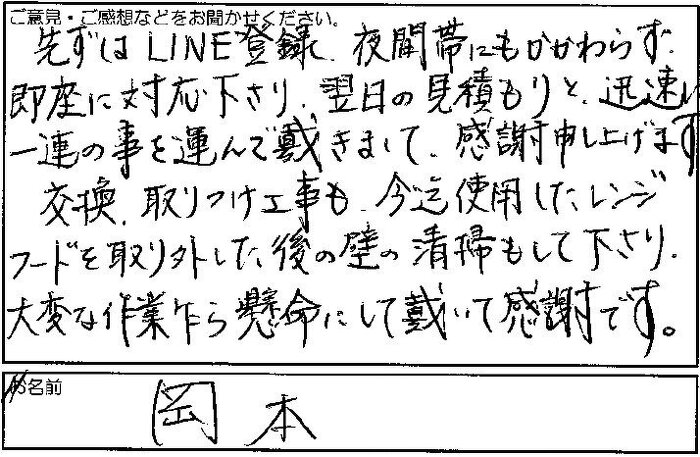 ご意見・ご感想などをお聞かせください。
先ずはLINE登録、夜間帯にもかかわらず、
即座に対応下さり、翌日の見積もりと、迅速に
一連の事を運んで戴きまして、感謝申し上げます
交換、取りつけ工事も、今迄使用したレンジ
フードを取り外した後の壁の清掃もして下さり、
大変な作業乍ら懸命にして戴いて感謝です。
お名前
岡本